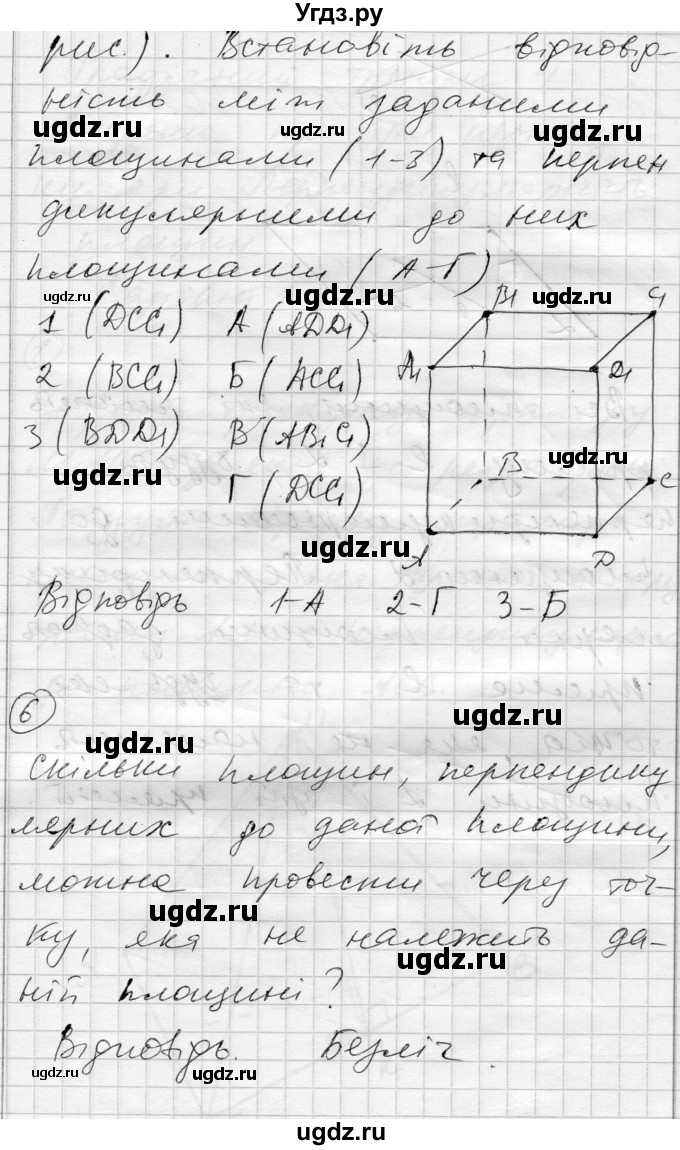 Угдз.ру
рис.). Встановіть відповід-
ність між заданими
ugdz.ru ugdz.ru ugdz.ru
площинами (1-3) та перпен
дикулярними до них
площинами (А-Г)
ugdz.ru ugdz.ru ugdz.ru
1 (DCC₁) А (ADD₁)
2 (BCC₁) Б (ACC₁)
3 (BDD₁) В (AB₁C₁)
Г (DCC₁)
B₁ C₁
A₁ D₁
B C
A D
ugdz.ru ugdz.ru
ugdz.ru
Відповідь 1-А 2-Г 3-Б
6
ugdz.ru ugdz.ru
Скільки площин, перпендику
лярних до даної площини,
можна провести через точ-
ugdz.ru
ку, яка не належить да-
ugdz.ru
ній площині?
Відповідь. Безліч.
ugdz.ru ugdz.ru
ugdz.ru